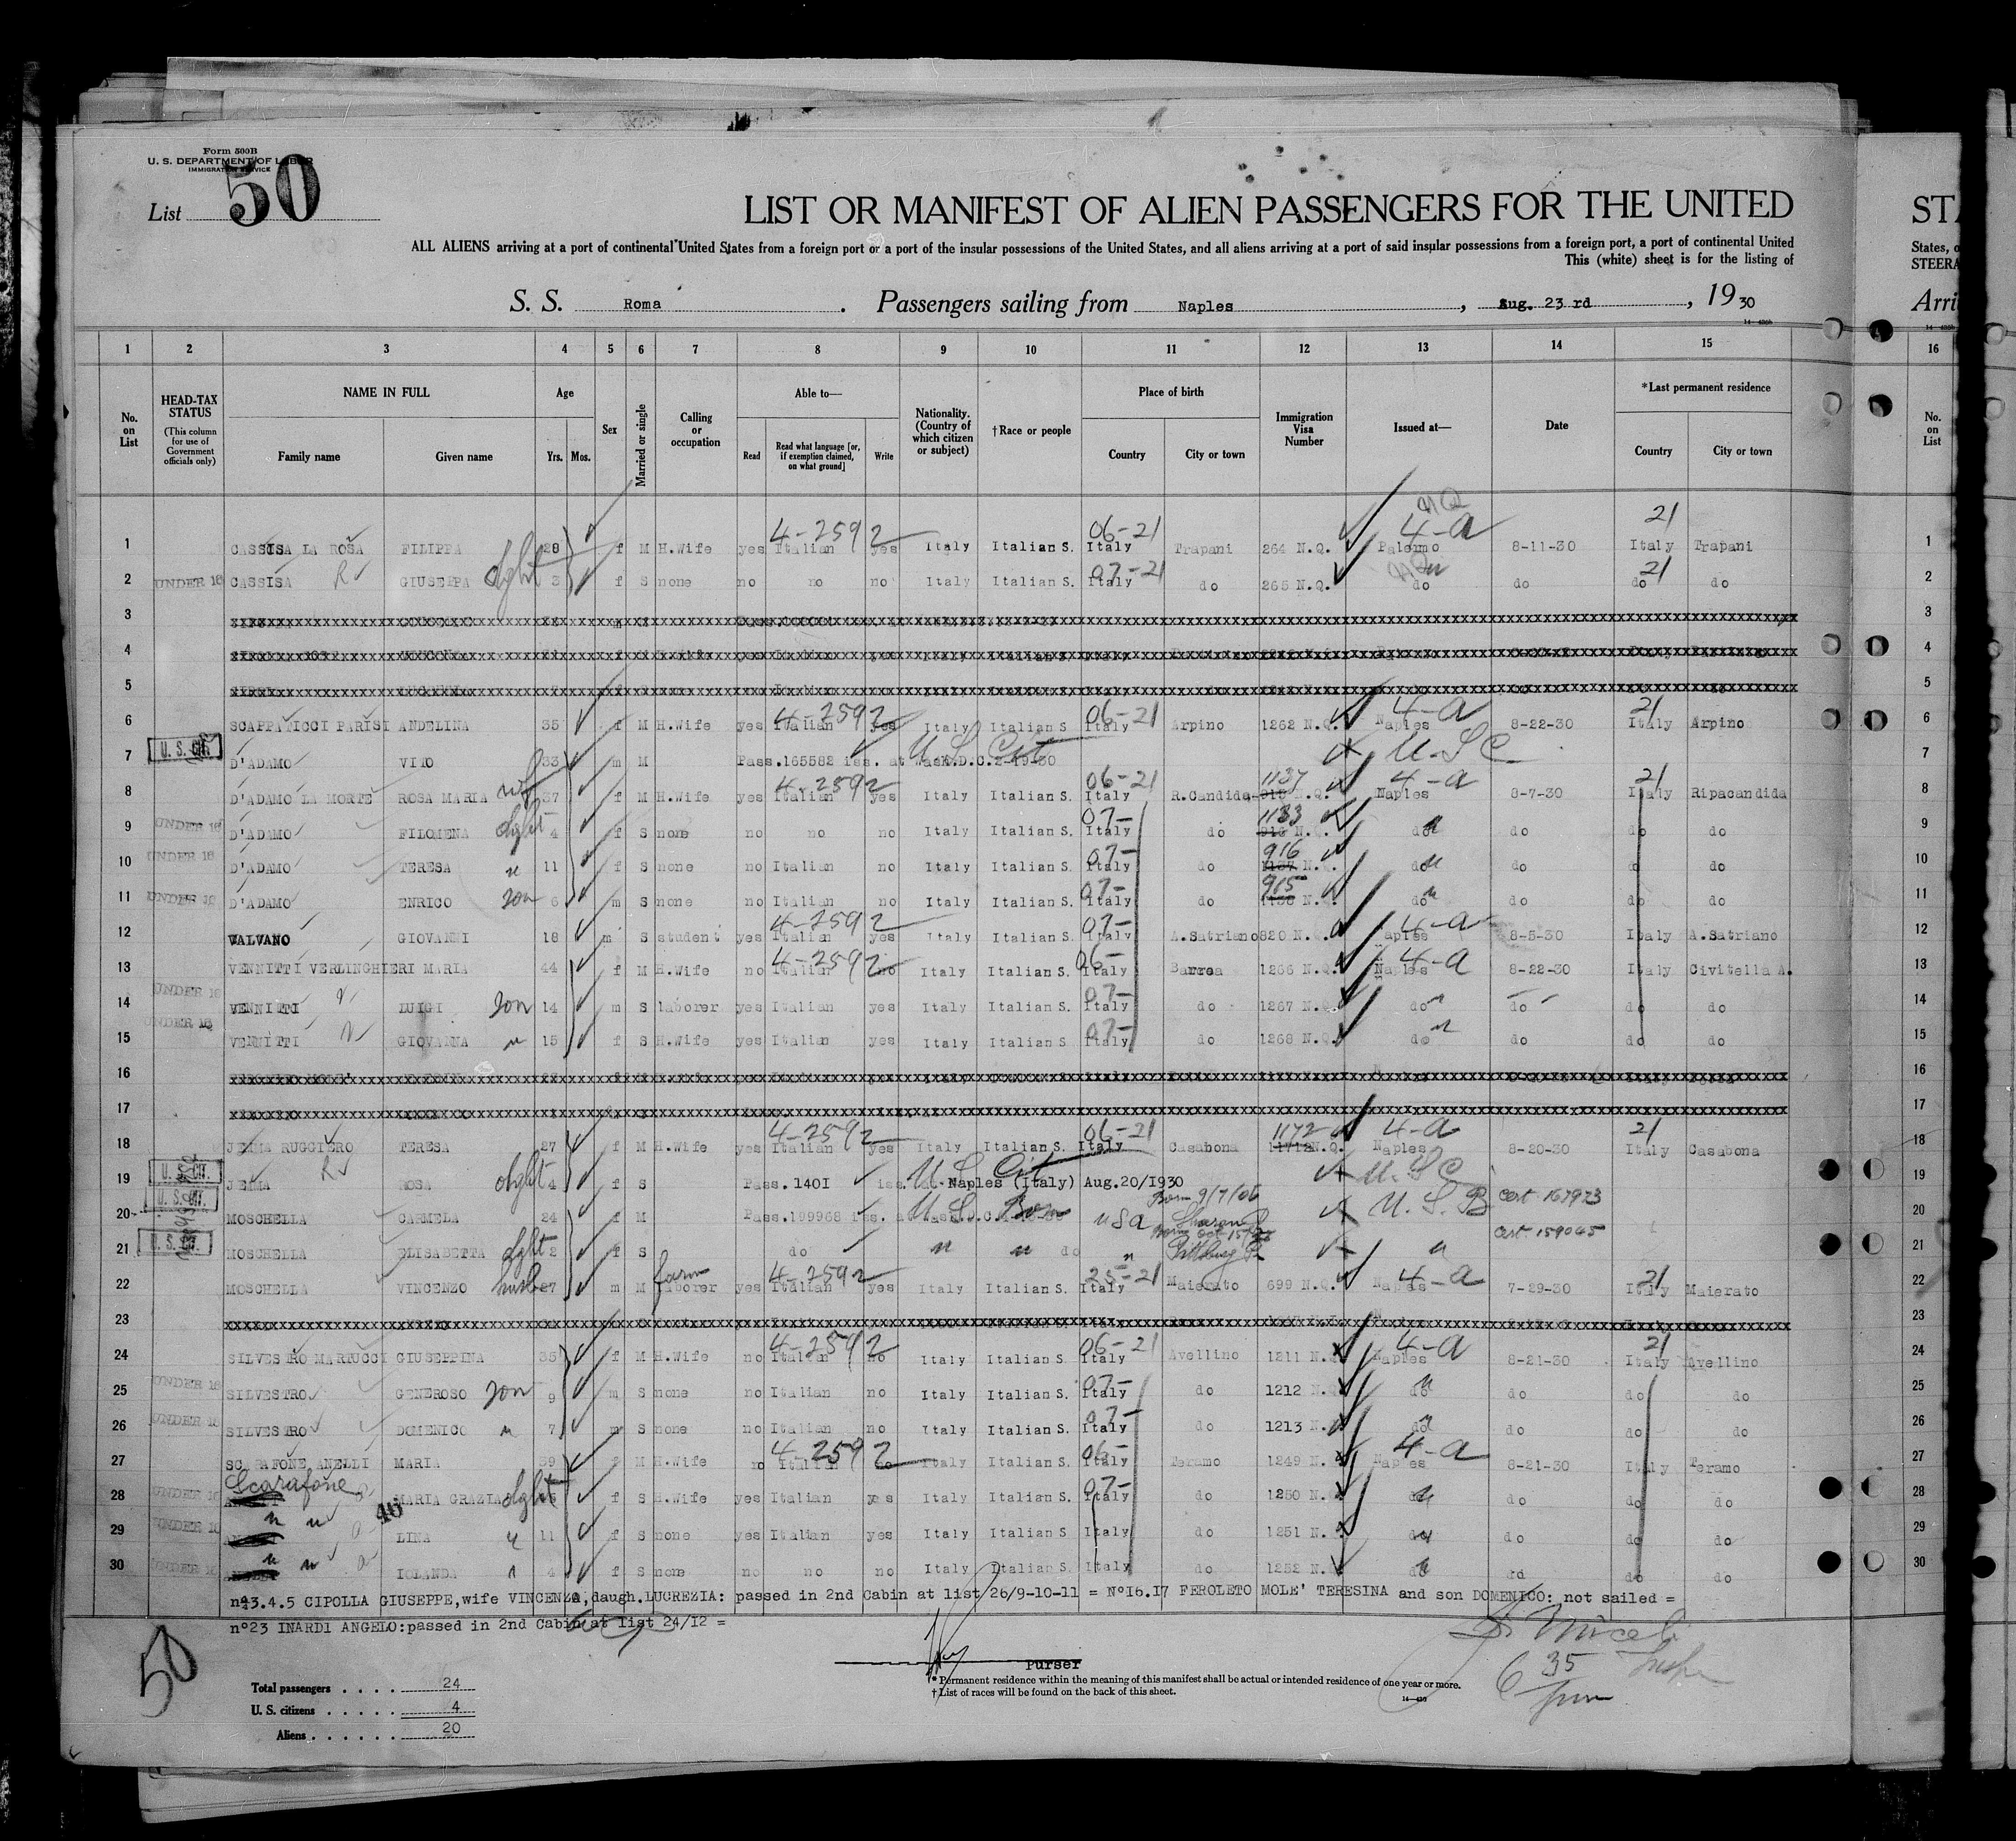 Form 500B
U. S. DEPARTMENT OF LABOR
IMMIGRATION SERVICE
List 50
LIST OR MANIFEST OF ALIEN PASSENGERS FOR THE UNITED
STA
ALL ALIENS arriving at a port of continental United States from a foreign port or a port of the insular possessions of the United States, and all aliens arriving at a port of said insular possessions from a foreign port, a port of continental United
States, o
This (white) sheet is for the listing of
STEERA
S. S. Roma . Passengers sailing from Naples , Aug. 23 rd , 19 30
Arri
1 2 3 4 5 6 7 8 9 10 11 12 13 14 15 16
No. on List
HEAD-TAX STATUS (This column for use of Government officials only)
NAME IN FULL Family name Given name
Age Yrs. Mos.
Sex
Married or single
Calling or occupation
Able to— Read Read what language [or, if exemption claimed, on what ground] Write
Nationality. (Country of which citizen or subject)
†Race or people
Place of birth Country City or town
Immigration Visa Number
Issued at—
Date
*Last permanent residence Country City or town
No. on List
4-2592 06-21 4-a 21
1 CASSISA LA ROSA FILIPPA 28 f M H.Wife yes Italian yes Italy Italian S. Italy Trapani 264 N.Q. Palermo 8-11-30 Italy Trapani 1
07-21 21
2 UNDER 16 CASSISA GIUSEPPA dght 3 f S none no no no Italy Italian S. Italy do 265 N.Q. do do do do 2
3 3
4 4
5 5
4-2592 06-21 4-a 21
6 SCAPPATICCI PARISI ANDELINA 35 f M H.Wife yes Italian yes Italy Italian S Italy Arpino 1262 N.Q. Naples 8-22-30 Italy Arpino 6
7 U. S. CIT. D'ADAMO VITO 33 m M Pass.165582 iss. at U S Cit U.S.C. 7
4-2592 06-21 1137 4-a 21
8 D'ADAMO LA MORTE ROSA MARIA wf 37 f M H.Wife yes Italian yes Italy Italian S. Italy R.Candida N.Q. Naples 8-7-30 Italy Ripacandida 8
07- 1133
9 UNDER 16 D'ADAMO FILOMENA dght 4 f S none no no no Italy Italian S. Italy do N.Q. do do do do 9
07- 916
10 UNDER 16 D'ADAMO TERESA " 11 f S none no Italian no Italy Italian S. Italy do N.Q. do do do do 10
07- 915
11 UNDER 16 D'ADAMO ENRICO son 6 m S none no Italian no Italy Italian S. Italy do N.Q. do do do do 11
4-2592 07- 4-a
12 VALVANO GIOVANNI 18 m S student yes Italian yes Italy Italian S. Italy A.Satriano 820 N.Q. Naples 8-5-30 Italy A.Satriano 12
4-2592 06- 4-a
13 VENNITTI VERLINGHIERI MARIA 44 f M H.Wife no Italian no Italy Italian S. Italy Barrea 1266 N.Q. Naples 8-22-30 Italy Civitella A. 13
07-
14 UNDER 16 VENNITTI LUIGI son 14 m S laborer yes Italian yes Italy Italian S. Italy do 1267 N.Q. do do do do 14
07-
15 UNDER 16 VENNITTI GIOVANNA " 15 f S H.Wife yes Italian yes Italy Italian S Italy do 1268 N.Q. do do do do 15
16 16
17 17
4-2592 06-21 1172 4-a 21
18 JEMMA RUGGIERO TERESA 27 f M H.Wife yes Italian yes Italy Italian S. Italy Casabona N.Q. Naples 8-20-30 Italy Casabona 18
19 U. S. CIT. JEMMA ROSA dght 4 f S Pass.1401 iss. at Naples (Italy) Aug.20/1930 U S Cit U.S.C. 19
Born 9/7/06
20 U. S. CIT. MOSCHELLA CARMELA 24 f M Pass.199968 iss. at U.S. Born USA Sharon U.S.B. Cert 167973 20
21 U. S. CIT. MOSCHELLA ELISABETTA dght 2 f S do " " do " Pittsburg Pa " Cert 159045 21
farm 4-2592 25-21 4-a 21
22 MOSCHELLA VINCENZO husb 27 m M laborer yes Italian yes Italy Italian S. Italy Maierato 699 N.Q. Naples 7-29-30 Italy Maierato 22
23 23
4-2592 06-21 4-a 21
24 SILVESTRO MARTUCCI GIUSEPPINA 35 f M H.Wife no Italian no Italy Italian S. Italy Avellino 1211 N.Q. Naples 8-21-30 Italy Avellino 24
07-
25 UNDER 16 SILVESTRO GENEROSO son 9 m S none no Italian no Italy Italian S. Italy do 1212 N.Q. do do do do 25
07-
26 UNDER 16 SILVESTRO DOMENICO " 7 m S none no Italian no Italy Italian S. Italy do 1213 N. do do do do 26
4-2592 06- 4-a
27 SCARAFONE ANELLI MARIA 39 f M H.Wife no Italian no Italy Italian S. Italy Teramo 1249 N. Naples 8-21-30 Italy Teramo 27
Scarafone 07-
28 UNDER 16 MARIA GRAZIA dght f S H.Wife yes Italian yes Italy Italian S. Italy do 1250 N. do do do do 28
29 UNDER 16 " " LINA " 11 f S none yes Italian yes Italy Italian S Italy do 1251 N. do do do do 29
30 UNDER 16 " " IOLANDA " 4 f S none no no no Italy Italian S Italy do 1252 N. do rd do do 30
n°3.4.5 CIPOLLA GIUSEPPE,wife VINCENZA,daugh.LUCREZIA: passed in 2nd Cabin at list 26/9-10-11 = N°16.17 FEROLETO MOLE' TERESINA and son DOMENICO: not sailed =
n°23 INARDI ANGELO:passed in 2nd Cabin at list 24/12 =
50
Purser
* Permanent residence within the meaning of this manifest shall be actual or intended residence of one year or more.
† List of races will be found on the back of this sheet.
Total passengers . . . . 24
U. S. citizens . . . . . 4
Aliens . . . . . . 20